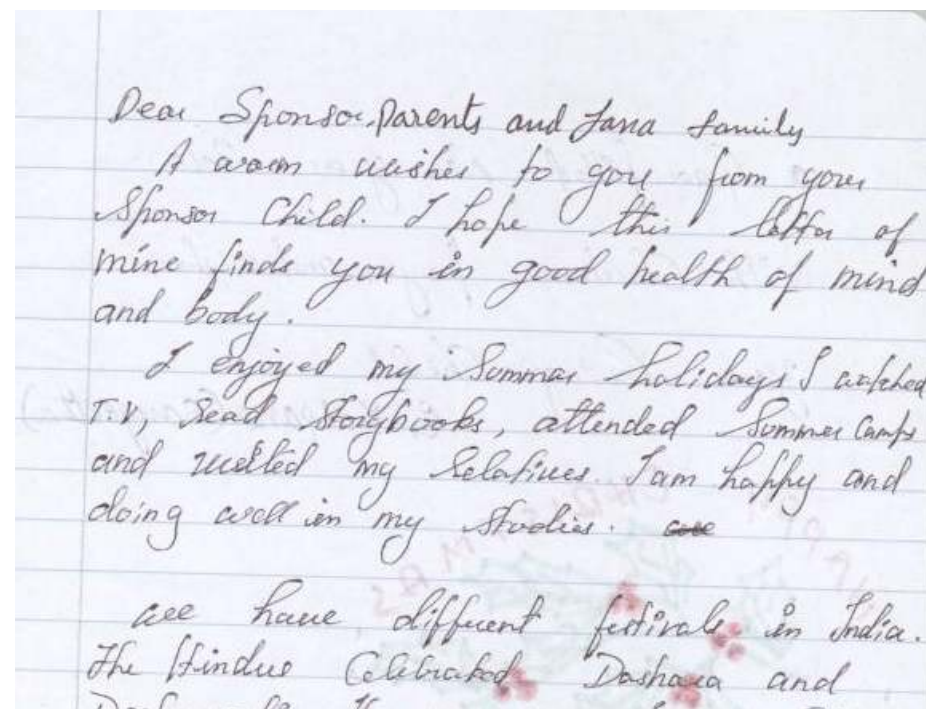 Dear Sponsor Parents and Jana family
A warm wishes to you from your
Sponsor Child. I hope this letter of
mine finds you in good health of mind
and body.
I enjoyed my Summar holidays I watched
T.V, read storybooks, attended Summer Camps
and my relatives. I am happy and
doing well in my studies.
we have different festivals in India.
The Hindus Celebrated Dashara and